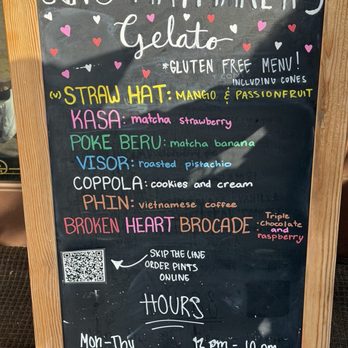 Gelato
*GLUTEN FREE MENU!
INCLUDING CONES
(V) STRAW HAT: MANGO & PASSIONFRUIT
KASA: matcha strawberry
POKE BERU: matcha banana
VISOR: roasted pistachio
COPPOLA: cookies and cream
PHIN: vietnamese coffee
BROKEN HEART BROCADE: Triple chocolate and raspberry
SKIP THE LINE
ORDER PINTS
ONLINE
HOURS
Mon-Thu 12 pm - 10 pm